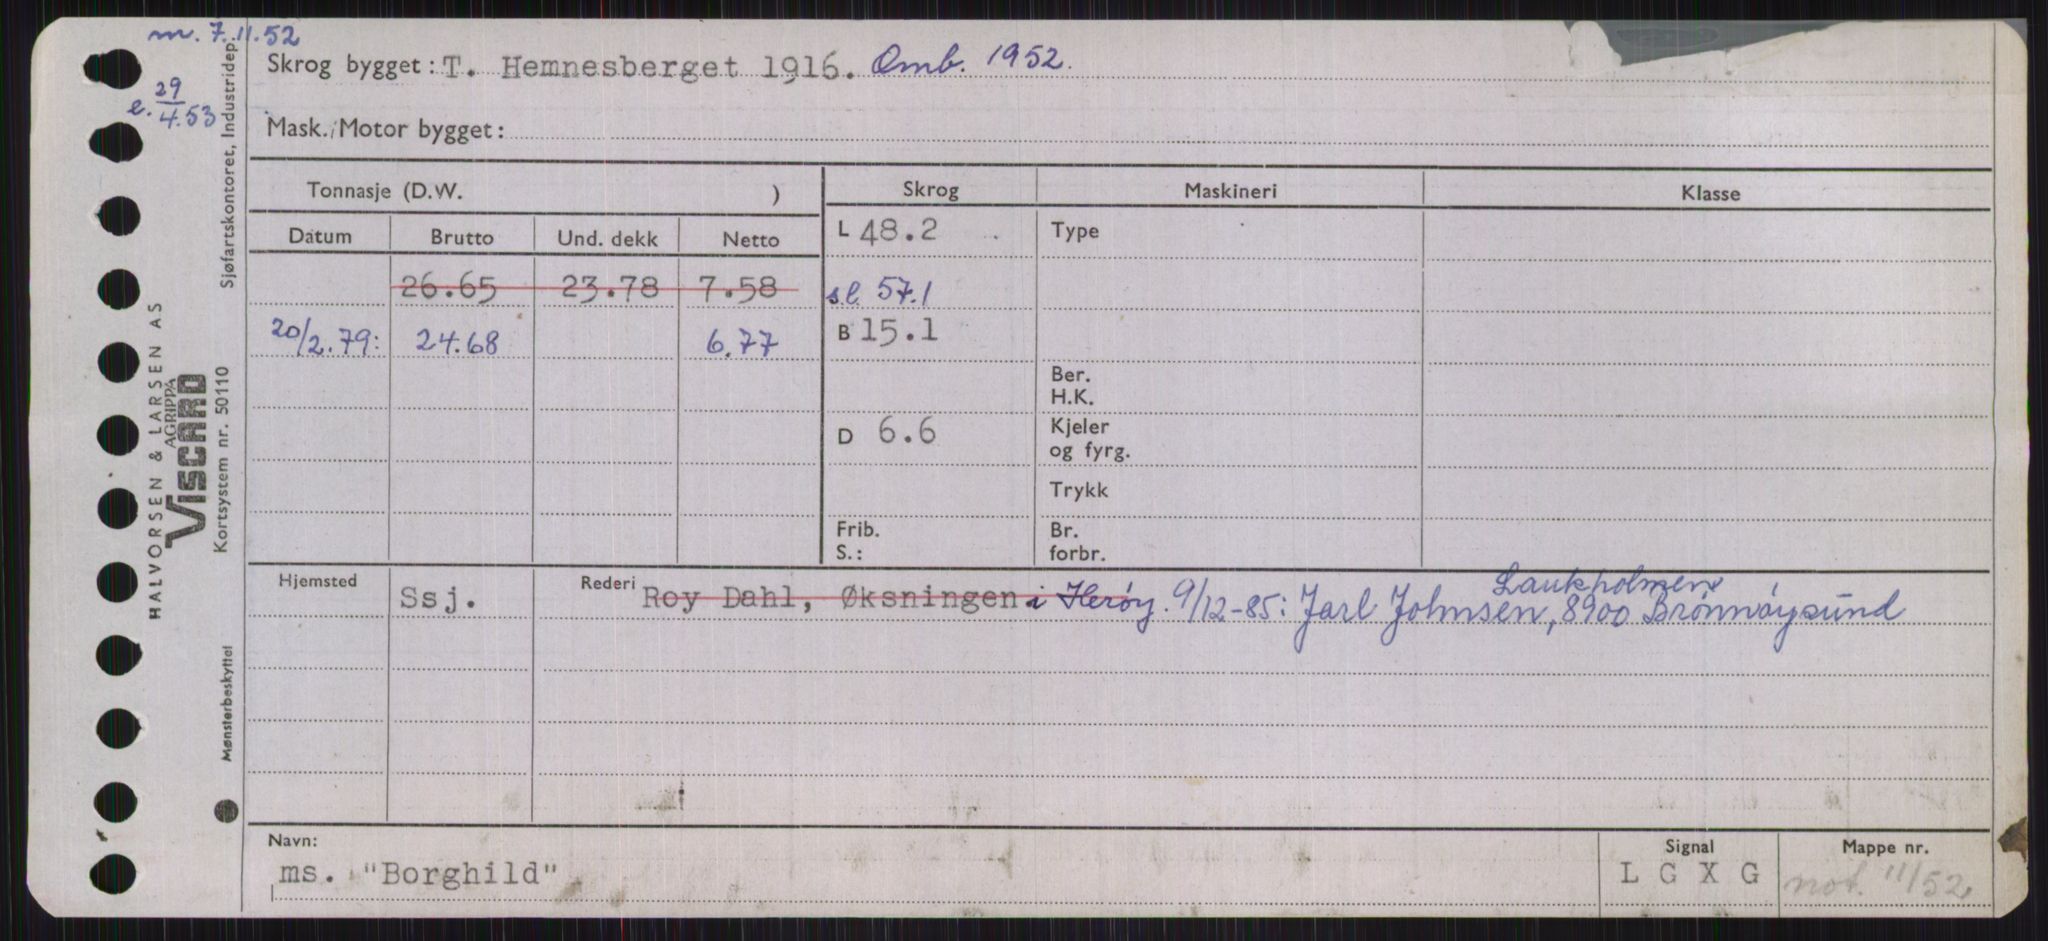 m. 7.11.52
e. 29/4.53
Skrog bygget: T. Hemnesberget 1916. Omb. 1952.
Mask./Motor bygget:
Tonnasje (D.W. )
Skrog
Maskineri
Klasse
Datum
Brutto
Und. dekk
Netto
L 48.2
Type
26.65
23.78
7.58
s.l 57.1
20/2.79:
24.68
6.77
B 15.1
Ber.
H.K.
D 6.6
Kjeler
og fyrg.
Trykk
Frib.
S.:
Br.
forbr.
Hjemsted
Ssj.
Rederi
Laukholmen
Roy Dahl, Øksningen i Herøy. 9/12-85: Jarl Johnsen, 8900 Brønnøysund
Navn:
ms. "Borghild"
Signal
L G X G
Mappe nr.
not. 11/52
Sjøfartskontoret, Industridep.
HALVORSEN & LARSEN AS
AGRIPPA
VISCARD
Kortsystem nr. 50110
Mønsterbeskyttet